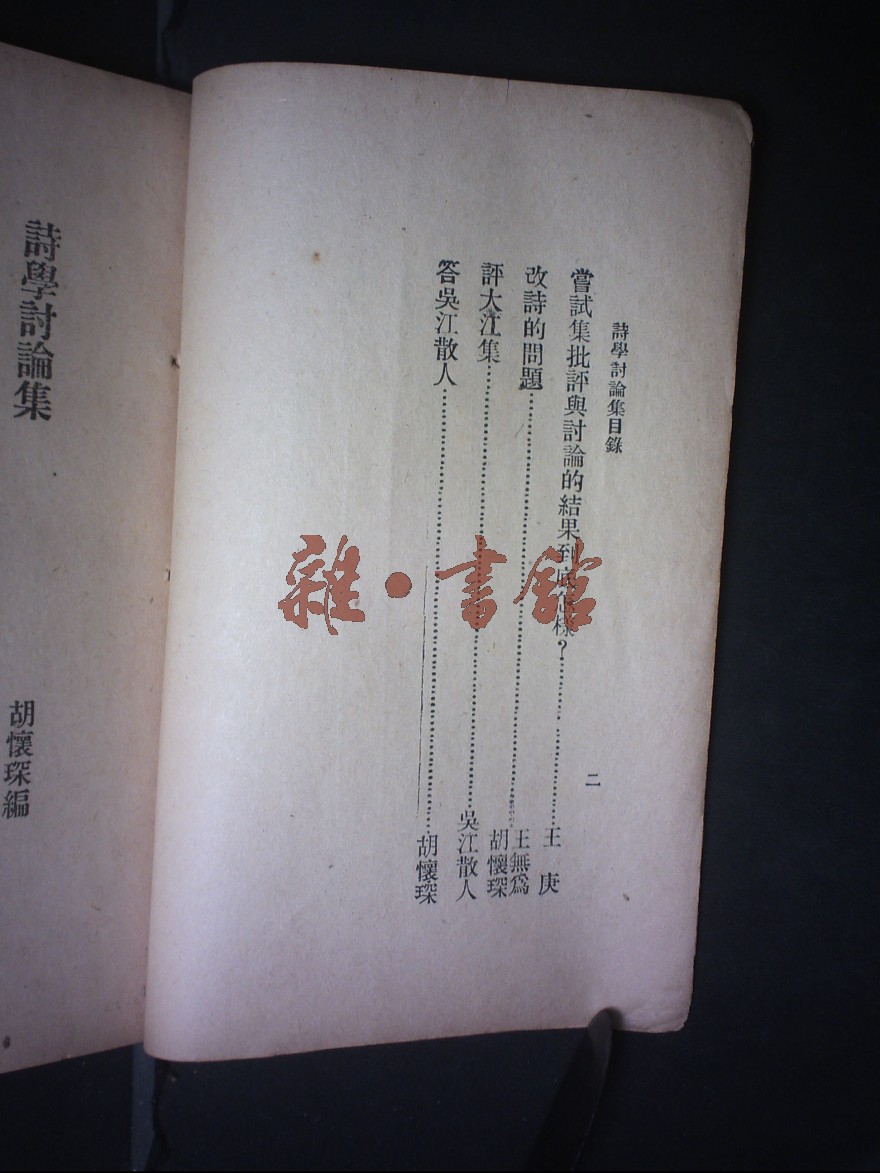 詩學討論集目錄
二
嘗試集批評與討論的結果到底怎樣？……王庚
改詩的問題……王無爲
胡懷琛
評大江集……吳江散人
答吳江散人……胡懷琛
詩學討論集
胡懷琛編
雜·書館